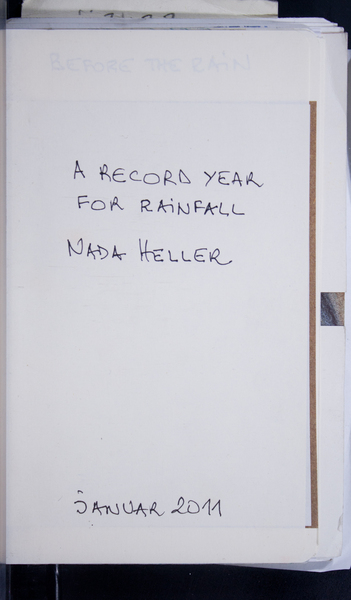 BEFORE THE RAIN
A RECORD YEAR
FOR RAINFALL
NADA HELLER
JANUAR 2011